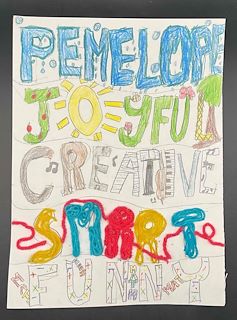 PEMELOPE
JOYFUL
CREATIVE
SMART
FUNNY